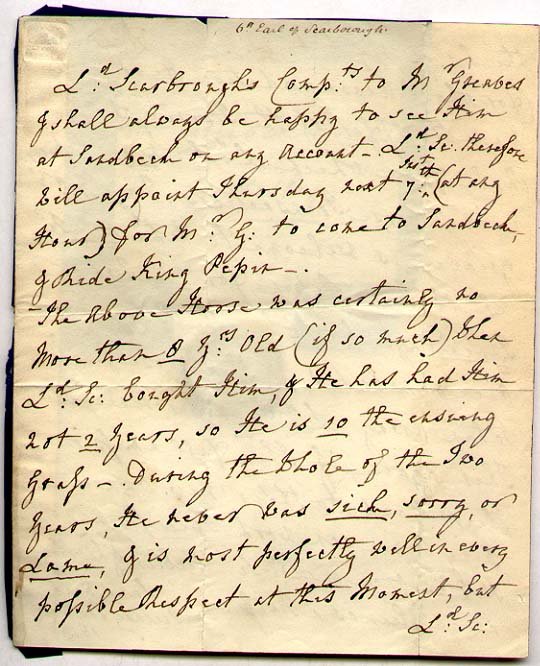 6th Earl of Scarborough.
Ld: Scarbrough's Compts: to Mr Greaves
& shall always be happy to see Him
at Sandbeck on any Account -. Ld: Sc: therefore
Will appoint Thursday next 7:th (at any
Hour) for Mr: G: to come to Sandbeck,
& Ride King Pepin -.
The Above Horse was certainly no
More than 8 Yrs: Old (if so much) When
Ld: Sc: bought Him, & He has had Him
not 2 Years, so He is 10 the ensuing
Grass -. During the Whole of the Two
Years, He never was sick, sorry, or
Lame, & is most perfectly well in every
possible Respect at this Moment, but
Ld: Sc: